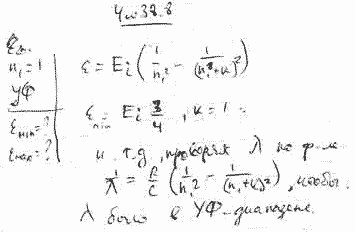 4 и 38.8
n₁ = 1
УФ
ε_min = ?
ε_max = ?
ε = E_i (1/n₁² - 1/(n₁+k)²)
ε_min = E_i 3/4, k = 1
и т.д, проверяя λ по ф-ле
1/λ = R/c (1/n₁² - 1/(n₁+k)²), чтобы
λ было в УФ-диапазоне.